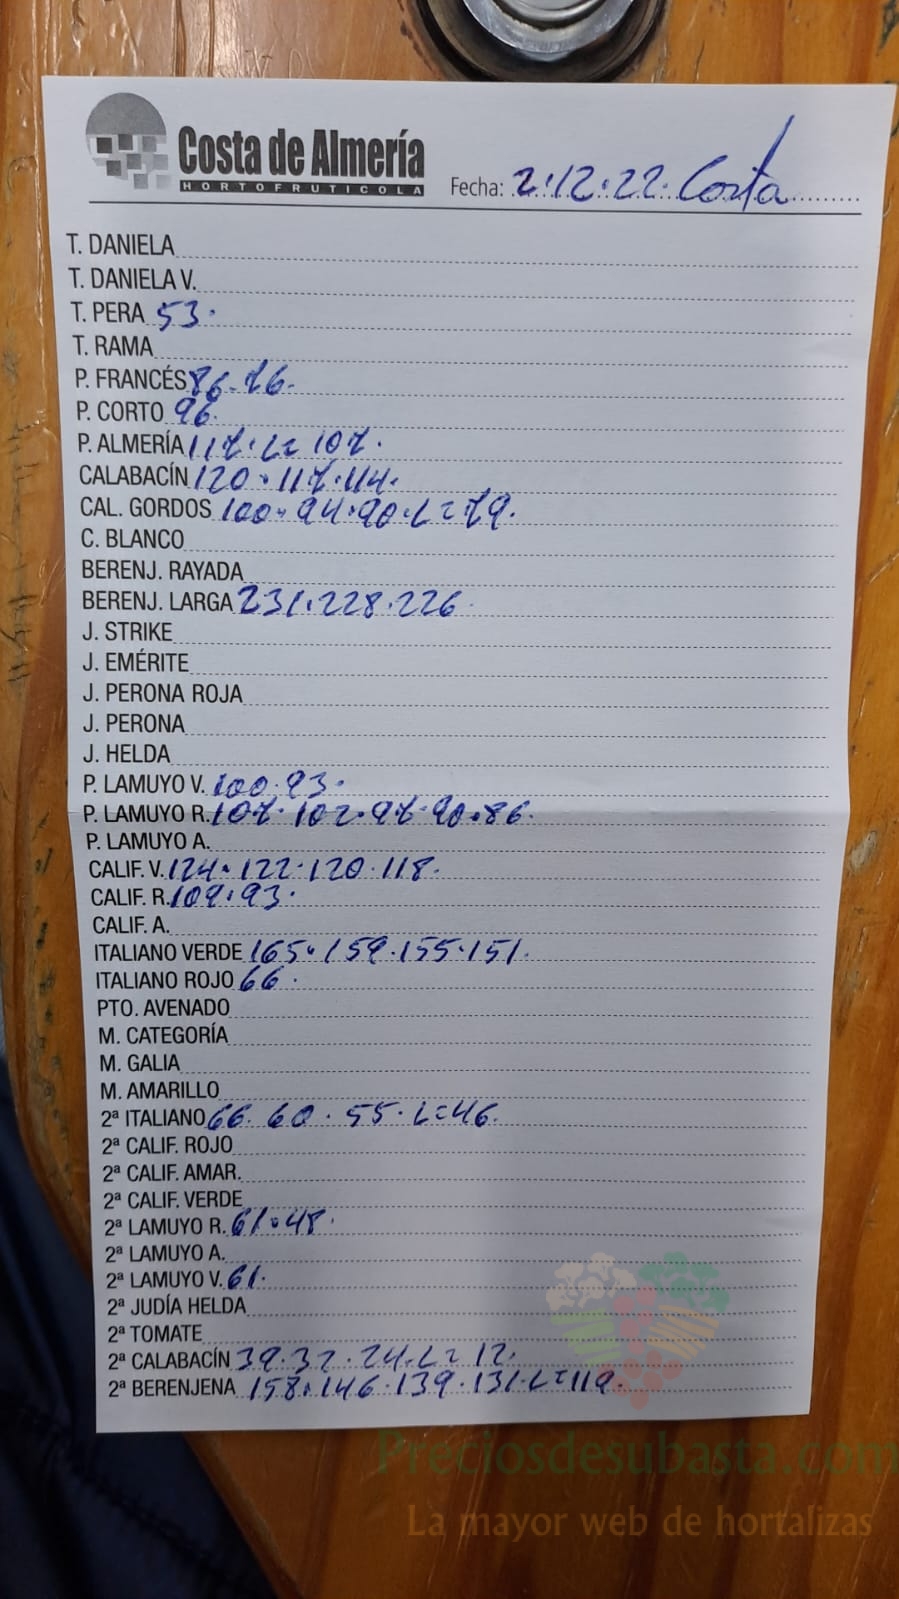 Costa de Almería
HORTOFRUTICOLA
Fecha: 2.12.22. Costa
T. DANIELA
T. DANIELA V.
T. PERA 53.
T. RAMA
P. FRANCÉS 86. 76.
P. CORTO 96.
P. ALMERÍA 117. L= 107.
CALABACÍN 120. 117. 114.
CAL. GORDOS 100. 94. 90. L= 79.
C. BLANCO
BERENJ. RAYADA
BERENJ. LARGA 231. 228. 226.
J. STRIKE
J. EMÉRITE
J. PERONA ROJA
J. PERONA
J. HELDA
P. LAMUYO V. 100. 93.
P. LAMUYO R. 107. 102. 97. 90. 86.
P. LAMUYO A.
CALIF. V. 124. 122. 120. 118.
CALIF. R. 109. 93.
CALIF. A.
ITALIANO VERDE 165. 159. 155. 151.
ITALIANO ROJO 66.
PTO. AVENADO
M. CATEGORÍA
M. GALIA
M. AMARILLO
2ª ITALIANO 66. 60. 55. L=46.
2ª CALIF. ROJO
2ª CALIF. AMAR.
2ª CALIF. VERDE
2ª LAMUYO R. 61. 48.
2ª LAMUYO A.
2ª LAMUYO V. 61.
2ª JUDÍA HELDA
2ª TOMATE
2ª CALABACÍN 39. 32. 24. L= 12.
2ª BERENJENA 158. 146. 139. 131. L=119.
Preciosdesubasta.com
La mayor web de hortalizas